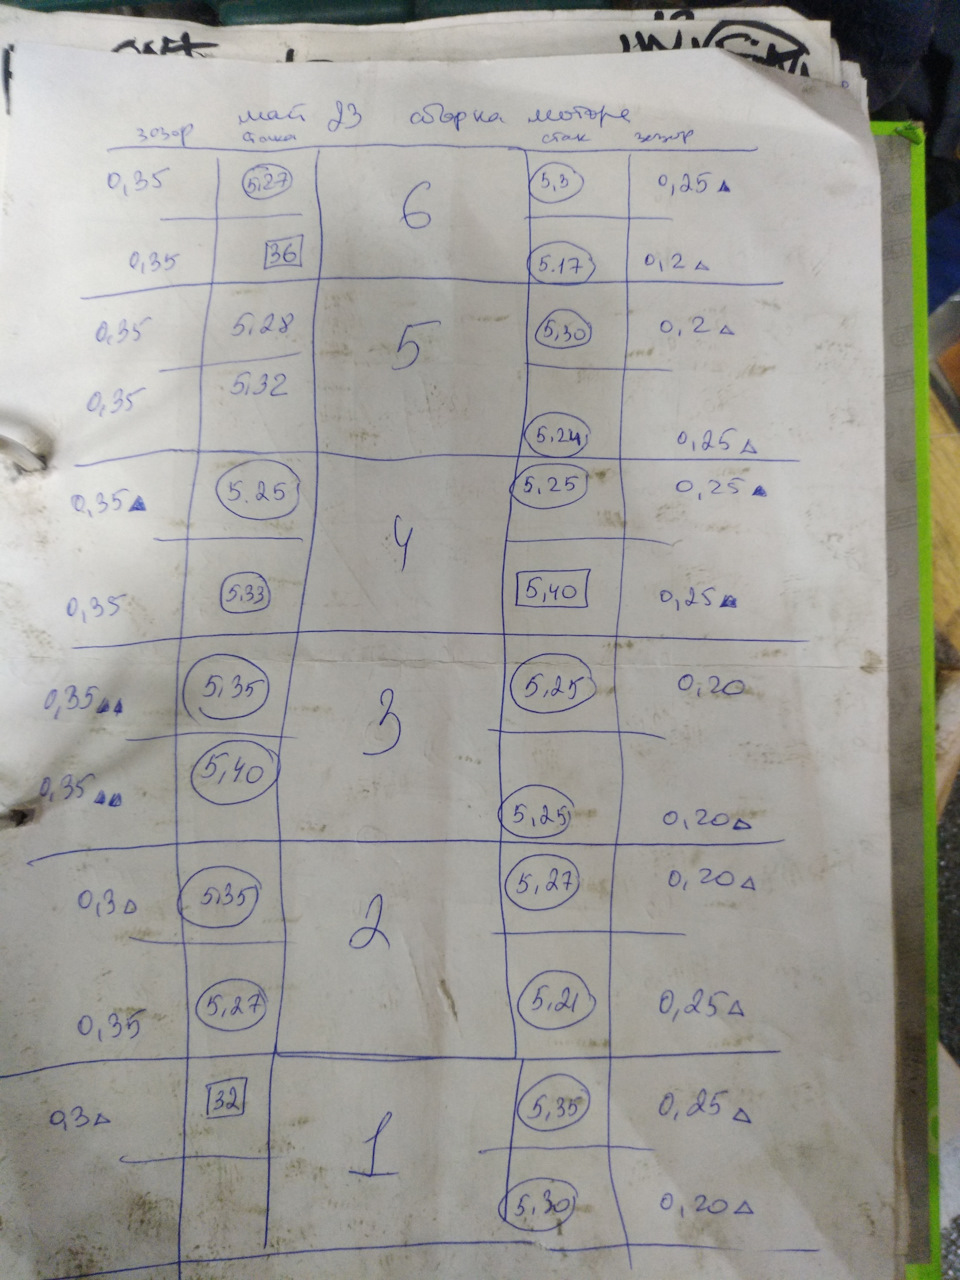 май 23 сборка моторе
зозор стака стак зозор
0,35 5,27 6 5,3 0,25
0,35 36 5.17 0,2
0,35 5,28 5 5,30 0,2
0,35 5,32 5,24 0,25
0,35 5.25 4 5,25 0,25
0,35 5,33 5,40 0,25
0,35 5,35 3 5,25 0,20
0,35 5,40 5,25 0,20
0,3 5,35 2 5,27 0,20
0,35 5,27 5,21 0,25
0,3 32 1 5,35 0,25
5,30 0,20